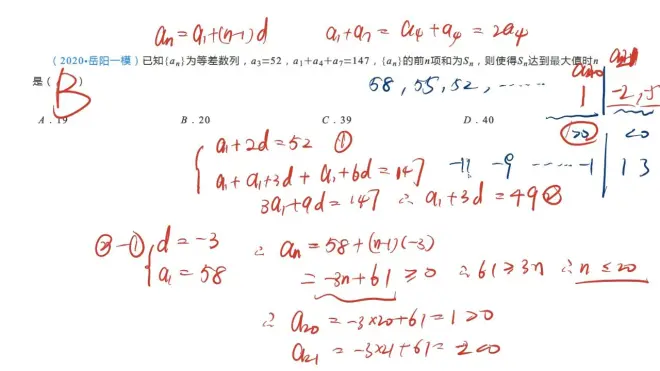 an=a1+(n-1)d a1+a7=a4+a4=2a4
(2020•岳阳一模)已知{an}为等差数列,a3=52,a1+a4+a7=147,{an}的前n项和为Sn,则使得Sn达到最大值时n
是( B )
58,55,52,…… a20 a21
1 -2,-5
A.19 B.20 C.39 D.40
>0 <0
a1+2d=52 ①
-11 -9 …… -1 1 3
a1+a1+3d+a1+6d=147
3a1+9d=147 ∴a1+3d=49②
②-① d=-3
a1=58
∴an=58+(n-1)(-3)
=-3n+61≥0 ∴61≥3n ∴n≤20
∴a20=-3×20+61=1>0
a21=-3×21+61=-2<0